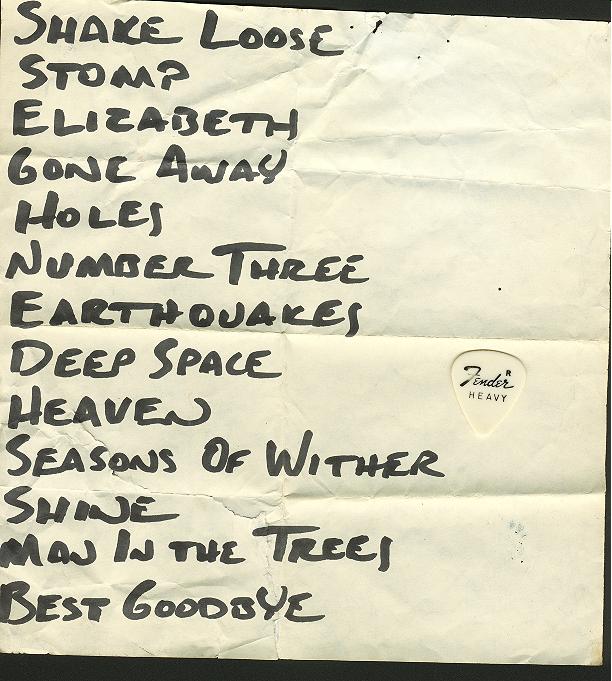 SHAKE LOOSE
STOMP
ELIZABETH
GONE AWAY
HOLES
NUMBER THREE
EARTHQUAKES
DEEP SPACE
Fender R
HEAVY
HEAVEN
SEASONS OF WITHER
SHINE
MAN IN THE TREES
BEST GOODBYE